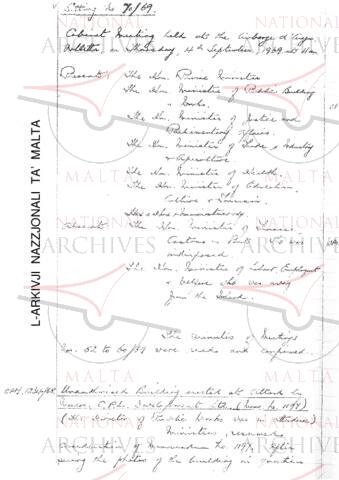 Sitting No 70/69.
Cabinet Meeting held at the Auberge d'Aragon
Valletta, on Thursday, 4th September, 1969 at
Present: The Hon. Prime Minister
The Hon. Minister of Public Building
& Works.
The Hon. Minister of Justice and
Parliamentary Affairs.
The Hon. Minister of Trade, Industry
& Agriculture
The Hon. Minister of Health
The Hon. Minister of Education
Culture & Tourism.
Absent: The Hon. Minister of Finance
Customs & Ports who was
indisposed.
The Hon. Minister of Labour Employment
& Welfare who was away
from the Island.
The minutes of Meetings
Nos. 52 to 60/69 were read and confirmed.
Unauthorised Building erected at
Development (Memo. No 1197)
(The Director of Public Works was in attendance)
Ministers resumed
consideration of Memorandum No 1197. After
seeing the photos of the building in question
L-ARKIVJI NAZZJONALI TA' MALTA
NATIONAL
ARCHIVES
MALTA